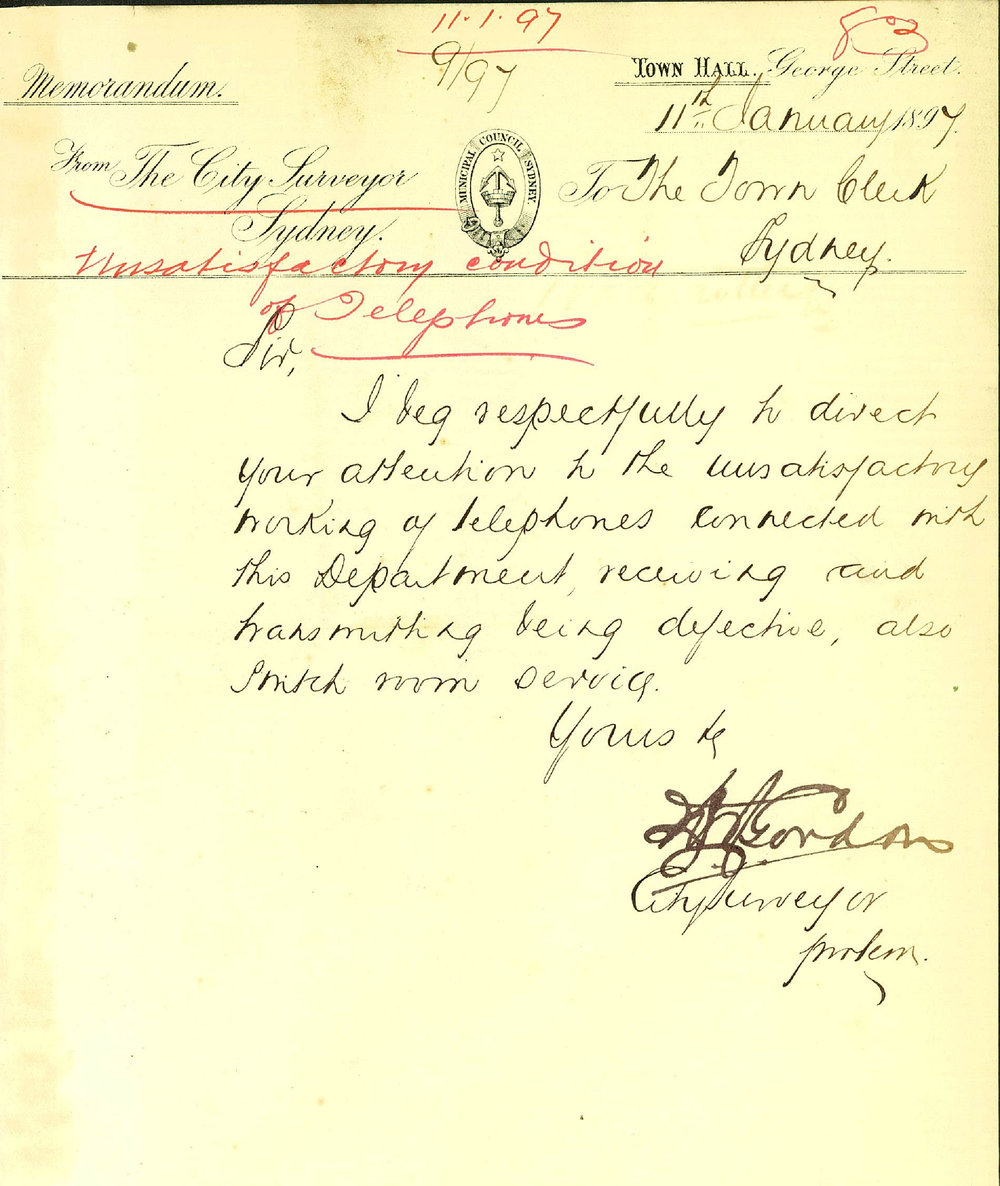 11.1.97
803
9/97
Memorandum.
Town Hall, George Street.
11th January 1897.
From The City Surveyor
Sydney.
MUNICIPAL COUNCIL SYDNEY
To The Town Clerk
Sydney.
Unsatisfactory condition
of Telephones
Sir,
I beg respectfully to direct
your attention to the unsatisfactory
working of telephones connected with
this Department, receiving and
transmitting being defective, also
switch room service.
Yours &c
Gordon
City Surveyor
protem.